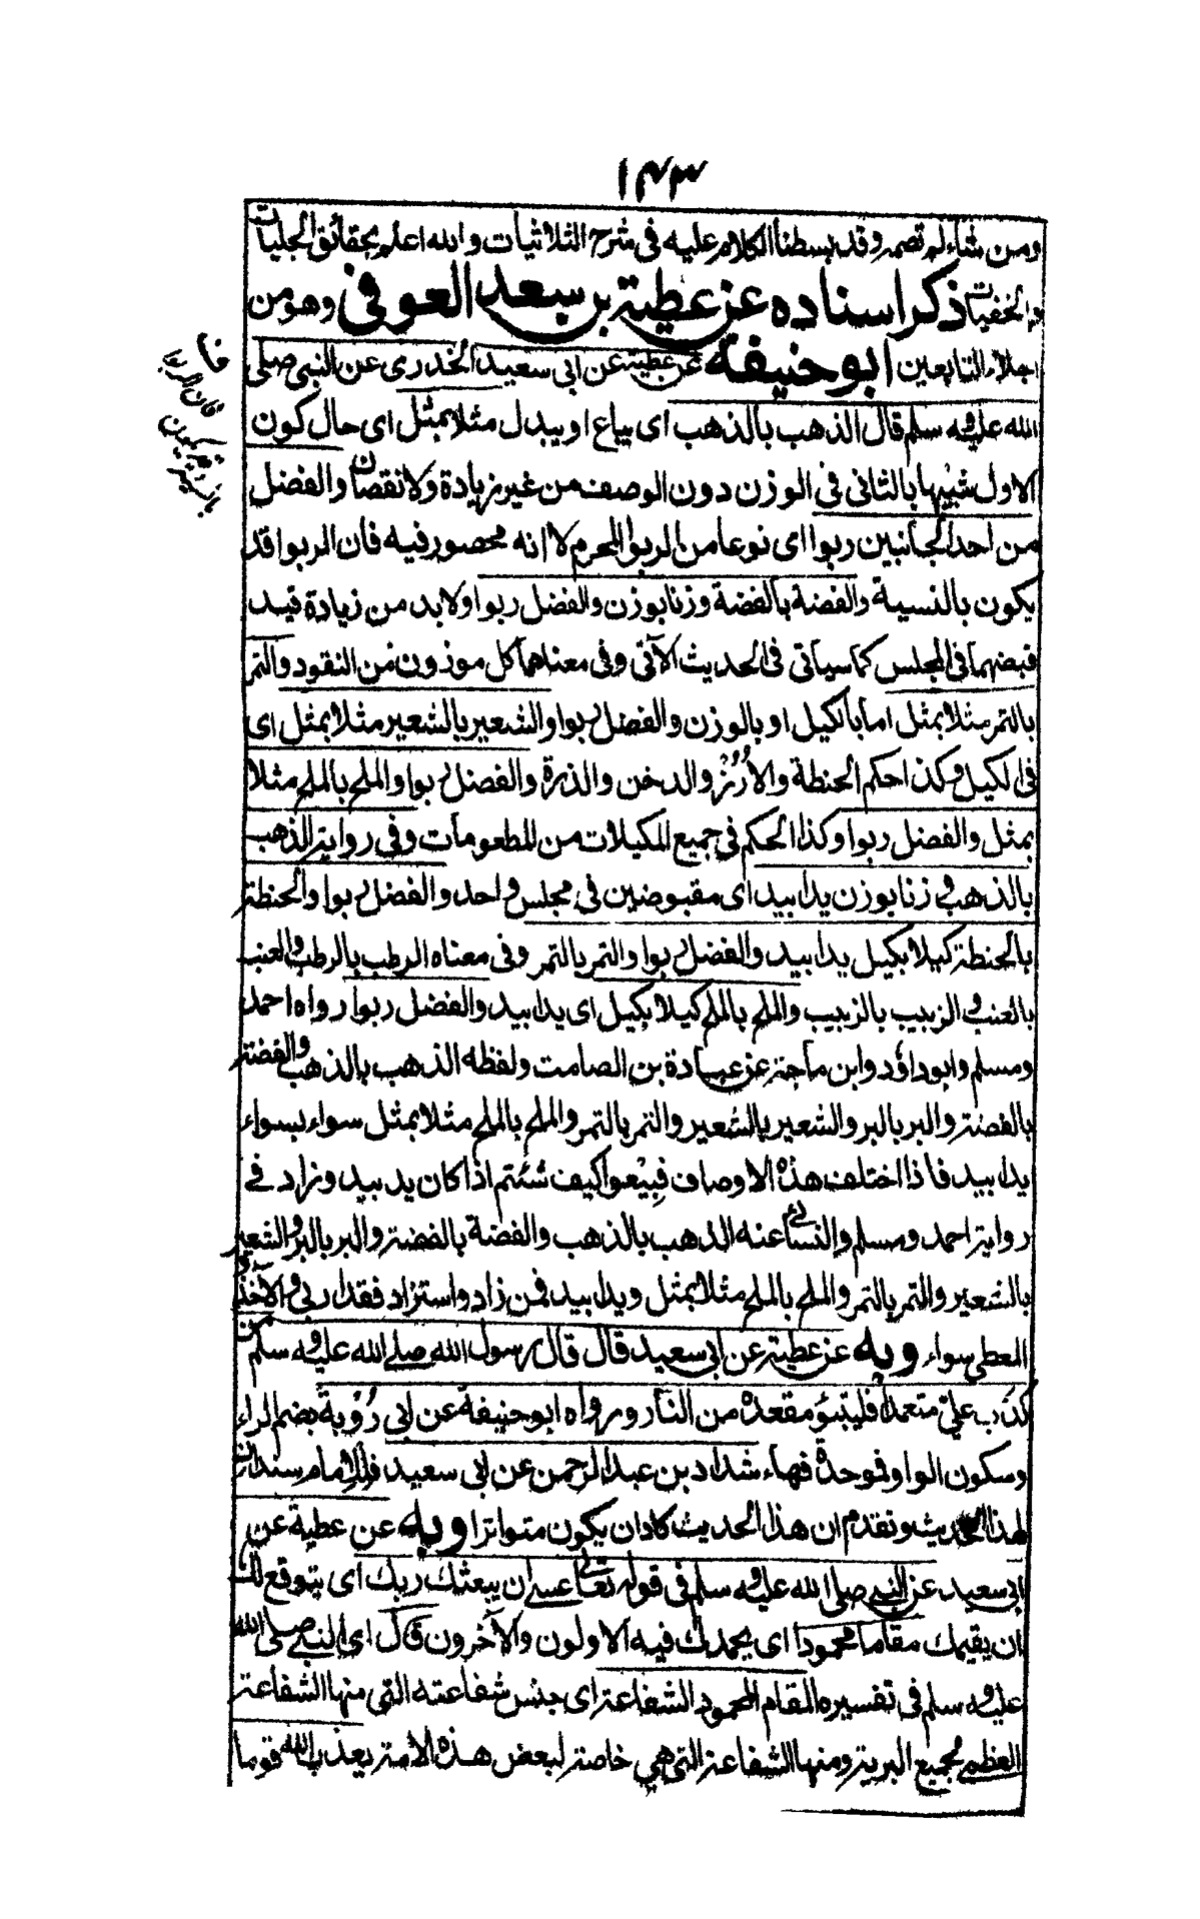 ١٤٣
ومن شاء لم تصمه وقد بسطنا الكلام عليه في شرح الثلاثيات والله اعلم بحقائق الجليات
والخفيات ذكر اسناده عن عطية بن سعد العوفي وهو من
اجلاء التابعين ابو حنيفة عن عطية عن ابي سعيد الخدري عن النبي صلى
الله عليه وسلم قال الذهب بالذهب اى يباع او يبدل مثلا بمثل اى حال كون
الاول شبيها بالثاني في الوزن دون الوصف من غير زيادة ولا نقصان والفضل
من احد الجانبين ربوا اى نوعا من الربوا المحرم لا انه محصور فيه فان الربوا قد
يكون بالنسية والفضة بالفضة وزنا بوزن والفضل ربوا ولا بد من زيادة قيد
قبضهما في المجلس كما سياتى في الحديث الآتى وفى معناهما كل موزون من النقود والتمر
بالتمر مثلا بمثل اما بالكيل او بالوزن والفضل ربوا والشعير بالشعير مثلا بمثل اى
في الكيل وكذا حكم الحنطة والأرز والدخن والذرة والفضل ربوا والملح بالملح مثلا
بمثل والفضل ربوا وكذا الحكم في جميع المكيلات من المطعومات وفي رواية الذهب
بالذهب وزنا بوزن يدا بيد اى مقبوضين في مجلس واحد والفضل ربوا والحنطة
بالحنطة كيلا بكيل يدا بيد والفضل ربوا والتمر بالتمر وفى معناه الرطب بالرطب والعنب
بالعنب والزبيب بالزبيب والملح بالملح كيلا بكيل اى يدا بيد والفضل ربوا رواه احمد
ومسلم وابو داؤد وابن ماجة عن عبادة بن الصامت ولفظه الذهب بالذهب والفضة
بالفضة والبر بالبر والشعير بالشعير والتمر بالتمر والملح بالملح مثلا بمثل سواء بسواء
يدا بيد فاذا اختلف هذه الاوصاف فبيعوا كيف شئتم اذا كان يد بيد وزاد في
رواية احمد ومسلم والنسائى عنه الذهب بالذهب والفضة بالفضة والبر بالبر والشعير
بالشعير والتمر بالتمر والملح بالملح مثلا بمثل ويدا بيد فمن زاد واستزاد فقد اربى والآخذ و
المعطى سواء وبه عن عطية عن ابى سعيد قال قال رسول الله صلى الله عليه وسلم من
كذب على متعمدا فليتبؤ مقعده من النار ورواه ابو حنيفة عن ابى رؤبة بضم الراء
وسكون الواو فموحدة فهاء شداد بن عبد الرحمن عن ابى سعيد فللامام سندان
لهذا الحديث وتقدم ان هذا الحديث كاد ان يكون متواترا وبه عن عطية عن
ابى سعيد عن النبى صلى الله عليه وسلم في قوله تعالى عسى ان يبعثك ربك اى يتوقع لك
ان يقيمك مقاما محمودا اى يحمدك فيه الاولون والآخرون قال اى النبى صلى الله
عليه وسلم في تفسيره المقام المحمود الشفاعة اى جنس شفاعته التى منها الشفاعة
العظمى لجميع البرية ومنها الشفاعة التى هي خاصة لبعض هذه الامة يعذب الله قوما